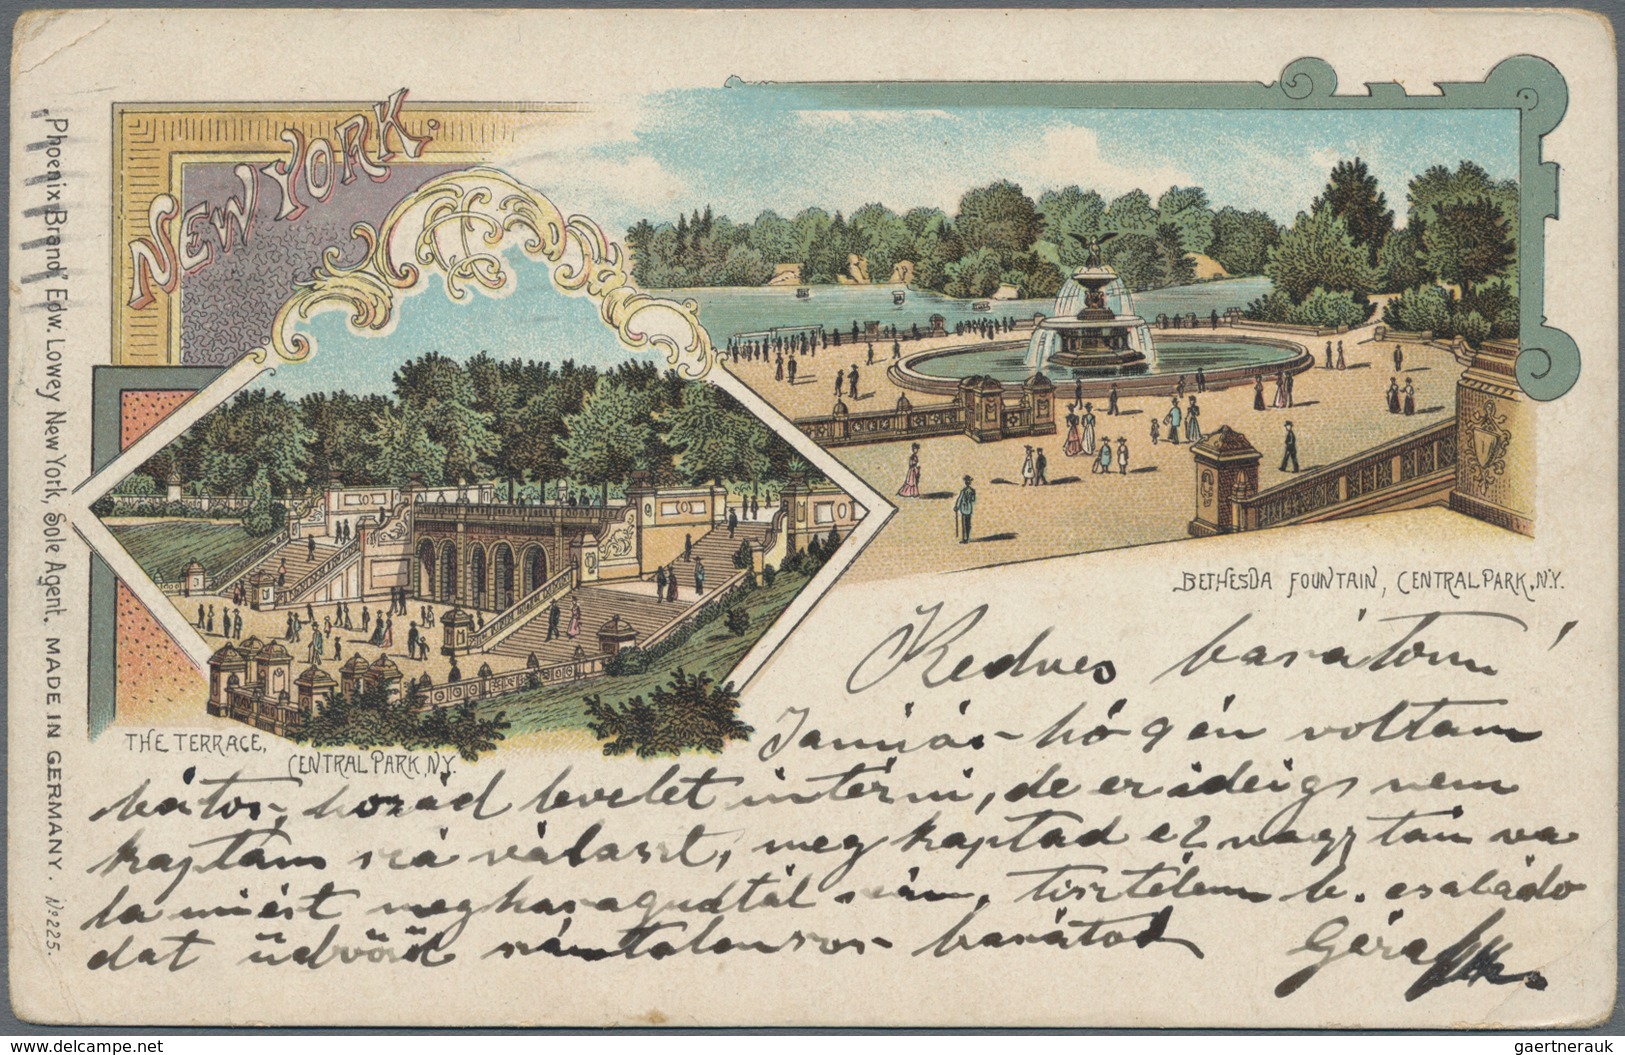 NEW YORK.
"Phoenix Brand" Edw. Lowey New York, Sole Agent. MADE IN GERMANY. No 225.
BETHESDA FOUNTAIN, CENTRAL PARK, N.Y.
THE TERRACE,
CENTRAL PARK, N.Y.
Kedves barátom!
Január hó 9én voltam
bátor hozád levelet intézni, de ez ideigs nem
kaptam rá választ, megkaptad e? vagy tán va
la miért megharagudtál rám, tisztelem b. családo
dat üdvözöl számtalanszor barátod Géza
delcampe.net
gaertnerauk